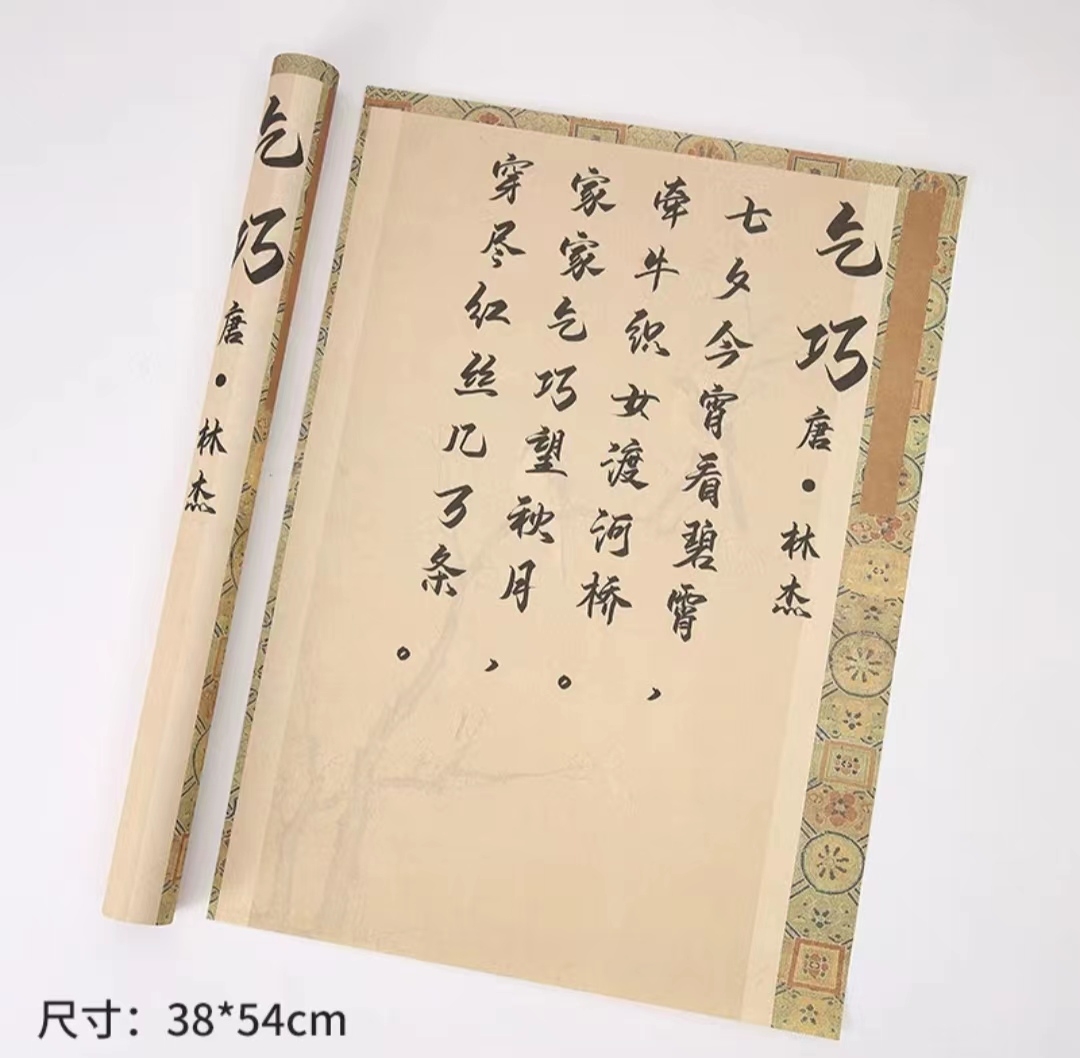 乞巧
唐•林杰
七夕今宵看碧霄，
牵牛织女渡河桥。
家家乞巧望秋月，
穿尽红丝几万条。
乞巧
唐•林杰
尺寸：38*54cm